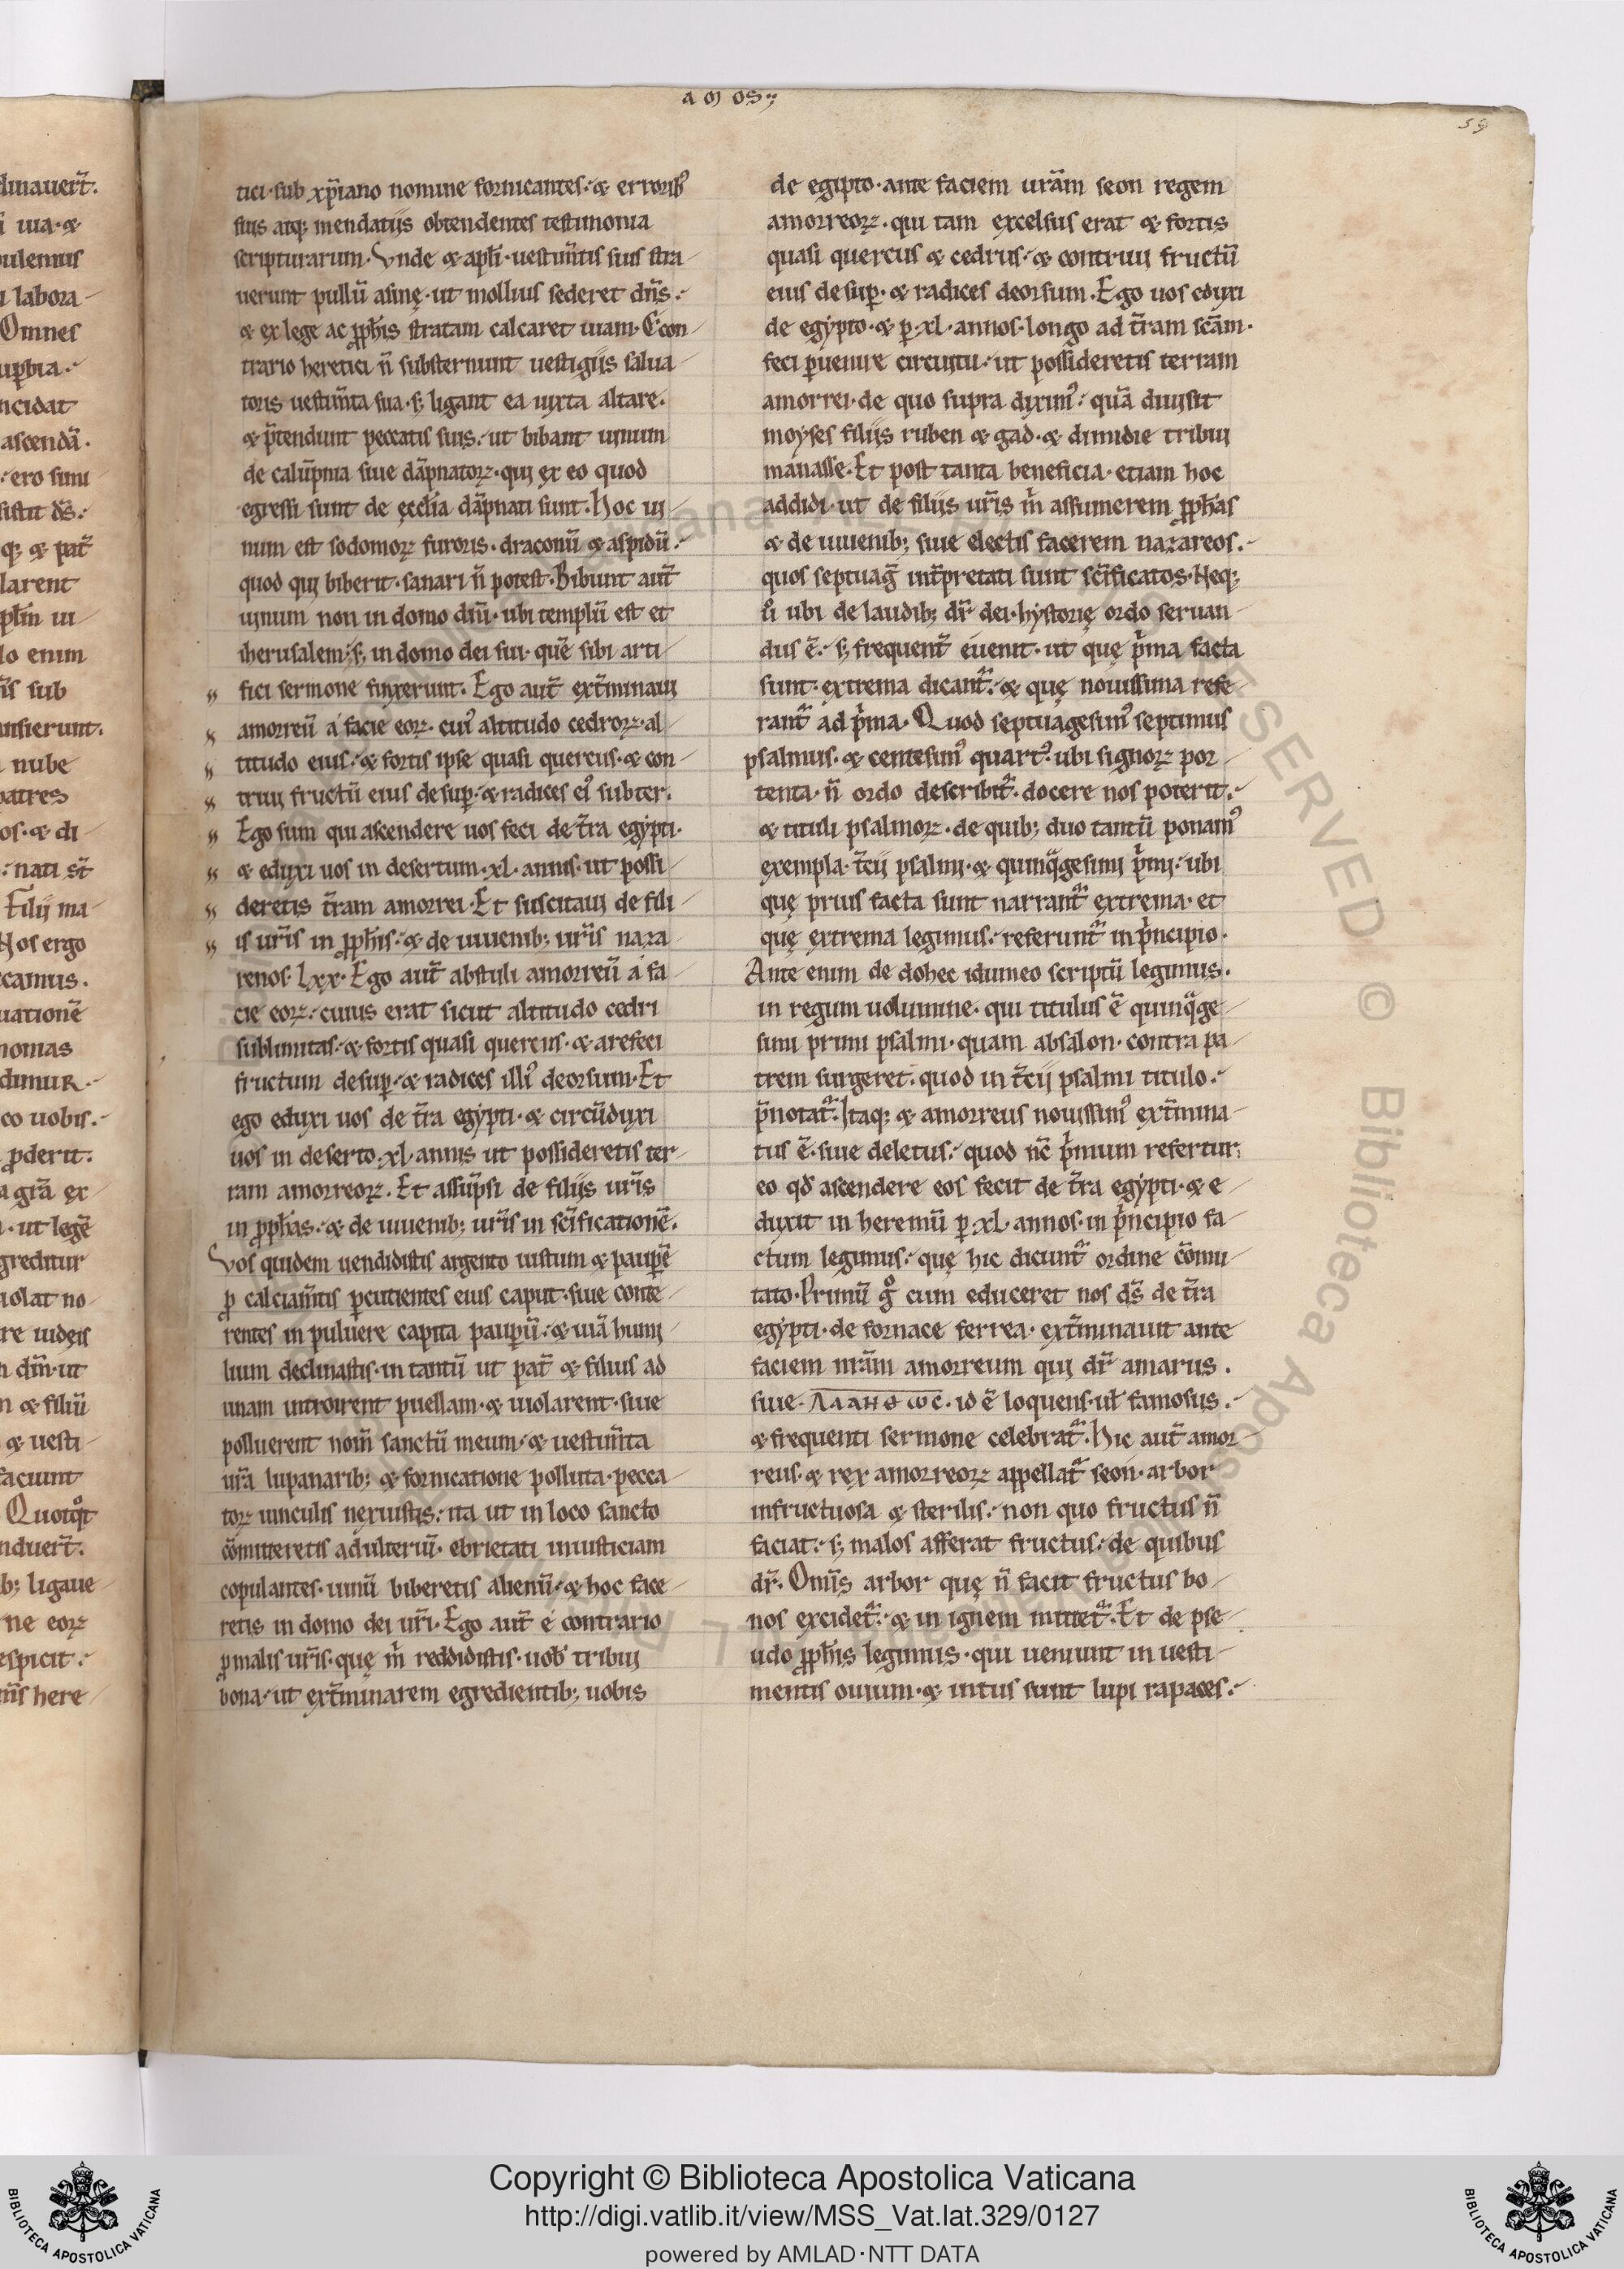 AMOS:,
59
tici·sub xp̃iano nomine fornicantes:⁊ erroribꝰ
suis atq; mendatijs obtendentes testimonia
scripturarum·Vnde ⁊ apl̃i·uestim̃tis suis stra-
uerunt pullũ asinę·ut mollius sederet dñs:-
⁊ ex lege ac ꝓph̃is stratam calcaret uiam·Econ-
trario heretici ñ substernunt uestigijs salua-
toris uestim̃ta sua·s; ligant ea iuxta altare.
⁊ p̃tendunt peccatis suis:ut bibant uinum
de calũpnia siue dãpnatoꝝ·qui ex eo quod
egressi sunt de ęccl̃ia dãpnati sunt·Hoc ui-
num est sodomoꝝ furoris·draconũ ⁊ aspidũ:-
quod qui biberit·sanari ñ potest·Bibunt aut̃
uinum non in domo diuĩ·ubi templũ est et
iherusalem:s; in domo dei sui·quẽ sibi arti-
fici sermone finxerunt·Ego aut̃ ext̃minaui
amorreũ a facie eoꝝ·cuiꝰ altitudo cedroꝝ·al-
titudo eius:⁊ fortis ipse quasi quercus·⁊ con-
triui fructũ eius desup̱·⁊ radices eiꝰ subter.
Ego sum qui ascendere uos feci de t̃ra egypti·
⁊ eduxi uos in desertum·xl·annis·ut possi-
deretis t̃ram amorrei·Et suscitaui de fili-
is ur̃is in ꝓph̃is:⁊ de iuuenib; ur̃is naza-
renos·Lxx·Ego aut̃ abstuli amorreũ a fa-
cie eoꝝ:cuius erat sicut altitudo cedri
sublimitas:⁊ fortis quasi quercus·⁊ arefeci
fructum desup̱:⁊ radices illiꝰ deorsum·Et
ego eduxi uos de t̃ra egypti·⁊ circũduxi
uos in deserto·xl·annis ut possideretis ter-
ram amorreoꝝ·Et assũpsi de filijs ur̃is
in ꝓph̃as:⁊ de iuuenib; ur̃is in sc̃ificationẽ.
Vos quidem uendidistis argento iustum ⁊ paup̱ẽ
ꝓ calciam̃tis p̱cutientes eius caput·siue conte-
rentes in puluere capita paup̱ũ:⁊ uiã humi-
lium declinastis·in tantũ ut pat̃ ⁊ filius ad
unam introirent puellam·⁊ uiolarent·siue
polluerent nom̃ sanctũ meum:⁊ uestim̃ta
ur̃a lupanarib; ⁊ fornicatione polluta·pecca-
toꝝ uinculis nexuistis:ita ut in loco sancto
cõmitteretis adulteriũ·ebrietati iniusticiam
copulantes·uinũ biberetis alienũ:⁊ hoc face-
retis in domo dei ur̃i·Ego aut̃ e contrario
ꝓ malis ur̃is·quę m̃ reddidistis·uob̃ tribui
bona:ut ext̃minarem egredientib; uobis
de egipto·ante faciem ur̃am seon regem
amorreoꝝ·qui tam excelsus erat ⁊ fortis
quasi quercus ⁊ cedrus:⁊ contriui fructũ
eius desup̱·⁊ radices deorsum·Ego uos eduxi
de egypto·⁊ p̱·xl·annos·longo ad t̃ram sc̃am·
feci p̱uenire circuitu:ut possideretis terram
amorrei·de quo supra diximꝰ:quã diuisit
moyses filijs ruben ⁊ gad·⁊ dimidie tribui
manasse·Et post tanta beneficia·etiam hoc
addidi·ut de filijs ur̃is m̃ assumerem ꝓph̃as
⁊ de iuuenib; siue electis facerem nazareos:-
quos septuag̃ int̃pretati sunt sc̃ificatos·Neq;
ũ ubi de laudib; dr̃ dei·hystorię ordo seruan-
dus ẽ:s; frequent̃ euenit·ut quę p̃ma facta
sunt·extrema dicant̃:⁊ quę nouissima refe-
rant̃ ad p̃ma·Quod septuagesimꝰ septimus
psalmus·⁊ centesimꝰ quartꝰ:ubi signoꝝ por-
tenta·ñ ordo describit̃·docere nos poterit:-
⁊ tituli psalmoꝝ·de quib; duo tantũ ponamꝰ
exempla·t̃cij psalmi·⁊ quinq̃gesimi p̃mi:ubi
quę prius facta sunt narrant̃ extrema·et
quę extrema legimus:referunt̃ in p̃ncipio·
Ante enim de dohec idumeo scriptũ legimus·
in regum uolumine·qui titulus ẽ quinq̃ge-
simi primi psalmi·quam absalon·contra pa-
trem surgeret·quod in t̃cij psalmi titulo:-
p̃notat̃·Itaq; ⁊ amorreus nouissimꝰ ext̃mina-
tus ẽ·siue deletus:quod nc̃ p̃mum refertur;
eo qd̃ ascendere eos fecit de t̃ra egypti·⁊ e-
duxit in heremũ p̱·xl·annos·in p̃ncipio fa-
ctum legimus:quę hic dicunt̃ ordine cõmu-
tato·Primũ gͦ cum educeret nos ds̃ de t̃ra
egypti·de fornace ferrea·ext̃minauit ante
faciem nr̃am amorreum qui dr̃ amarus.
siue·ΛΑΛΗΘωC·id ẽ loquens·ul̃ famosus:-
⁊ frequenti sermone celebrat̃·Hic aut̃ amor-
reus·⁊ rex amorreoꝝ appellat̃ seon·arbor
infructuosa ⁊ sterilis:non quo fructus ñ
faciat:s; malos afferat fructus:de quibus
dr̃·Omis̃ arbor quę ñ facit fructus bo-
nos excidet̃:⁊ in ignem mittet̃·Et de pse-
udo ꝓph̃is legimus·qui ueniunt in uesti-
mentis ouium·⁊ intus sunt lupi rapaces:-
Copyright © Biblioteca Apostolica Vaticana
http://digi.vatlib.it/view/MSS_Vat.lat.329/0127
powered by AMLAD·NTT DATA
BIBLIOTECA APOSTOLICA VATICANA
BIBLIOTECA APOSTOLICA VATICANA